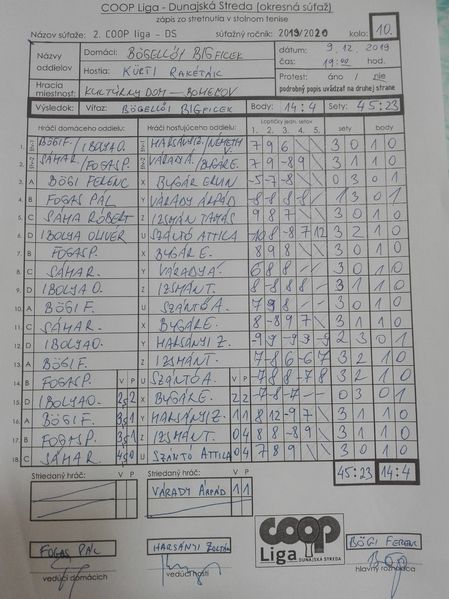 COOP Liga - Dunajská Streda (okresná súťaž)
zápis zo stretnutia v stolnom tenise
Názov súťaže: 2. COOP liga - DS súťažný ročník: 2019/2020 kolo: 10.
Názvy oddielov
Domáci: BÖGELLŐI BIGFICEK
Hostia: KÜRTI RAKÉTÁIK
dátum: 9. 12. 2019
čas: 19:00 hod.
Hracia miestnosť: KULTÚRNY DOM - BOHEĽOV
Protest: áno / nie
podrobný popis uvádzať na druhej strane
Výsledok: Víťaz: BÖGELLŐI BIGFICEK Body: 14:4 Sety: 45:23
Hráči domáceho oddielu Hráči hosťujúceho oddielu Loptičky jedn. setov sety body
1. 2. 3. 4. 5.
1. BÖGI F. / IBOLYA O. HARSÁNYI Z. / NÉMETH 7 9 6 3 0 1 0
2. SÁHA R. / FOGAS P. VÁRADY Á. / BUGÁR E. 7 9 -8 9 3 1 1 0
3. A BÖGI FERENC X BUGÁR -5 -7 -8 0 3 0 1
4. B FOGAS PÁL Y VÁRADY ÁRPÁD 1 3 0 1
5. C SÁHA RÓBERT Z IZSMÁN TAMÁS 9 8 7 3 0 1 0
6. D IBOLYA OLIVER U SZÁNTÓ ATTILA 8 -8 -7 12 3 2 1 0
7. B FOGAS P. X BUGÁR E. 8 9 8 3 0 1 0
8. C SÁHA R. Y VÁRADY Á. 6 8 8 3 0 1 0
9. D IBOLYA O. Z IZSMÁN T. 3 1 1 0
10. A BÖGI F. U SZÁNTÓ A. 7 9 8 3 0 1 0
11. C SÁHA R. X BUGÁR E. 8 -8 9 7 3 1 1 0
12. D IBOLYA O. Y HARSÁNYI Z. 2 3 0 1
13. A BÖGI F. Z IZSMÁN T. 3 2 1 0
14. B FOGAS P. U SZÁNTÓ A. 3 2 1 0
V P V P
15. D IBOLYA O. 2 2 X BUGÁR E. 2 2 -7 -8 -7 0 3 0 1
16. A BÖGI F. 3 1 Y HARSÁNYI Z. 1 1 8 12 -9 7 3 1 1 0
17. B FOGAS P. 3 1 Z IZSMÁN T. 0 4 8 8 -8 9 3 1 1 0
18. C SÁHA R. 4 0 U SZÁNTÓ ATTILA 0 4 7 8 9 3 0 1 0
Striedaný hráč: V P Striedaný hráč: V P 45:23 14:4
VÁRADY ÁRPÁD 1 1
FOGAS PÁL
HARSÁNYI ZOLTÁN
coop
Liga
DUNAJSKÁ STREDA
BÖGI FERENC
vedúci domácich
vedúci hostí
hlavný rozhodca